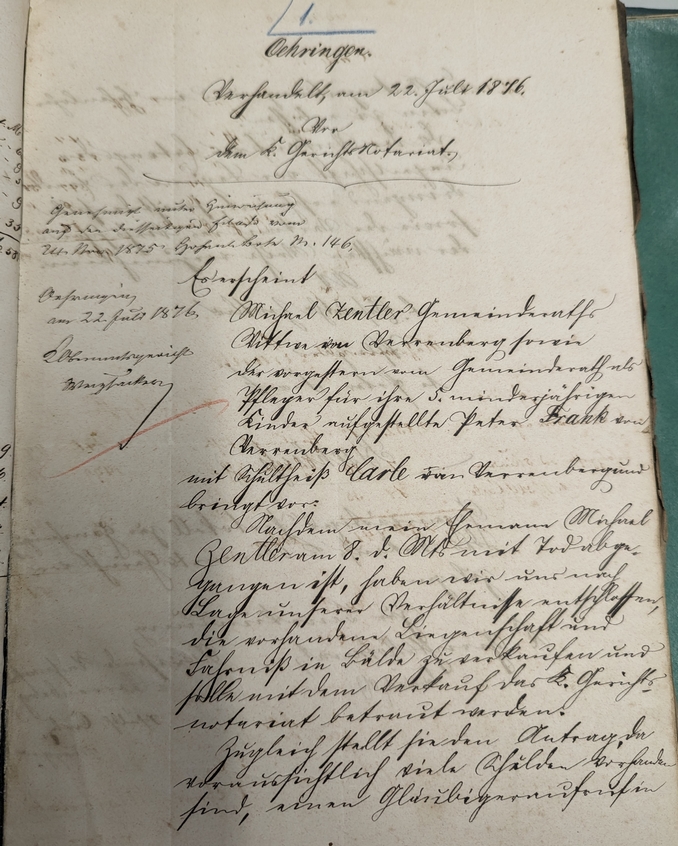 1.
Oehringen.
Verhandelt, am 22. Juli 1876.
Vor
dem K. GerichtsNotariat.
Genehmigt unter Hinweisung
auf den diesseitigen Erlaß vom
24. Nov. 1875 No. 146.
Oehringen,
am 22. Juli 1876.
K Oberamtsgericht
Es erscheint
Michael Zentler Gemeinderaths
Wittwe von Verrenberg sowie
der vorgestern vom Gemeinderath als
Pfleger für ihre 5. minderjährigen
Kinder aufgestellte Peter Frank von
Verrenberg
mit Schultheiß Carle von Verrenberg und
bringt vor:
Nachdem mein Ehemann Michael
Zentler am 8. d. Mts mit Tod abge-
gangen ist, haben wir uns nach
Lage unserer Verhältnisse entschlossen,
die vorhandene Liegenschaft und
Fahrniß in Bälde zu verkaufen und
solle mit dem Verkauf das K. Gerichts-
notariat betraut werden.
Zugleich stellt sie den Antrag, da
voraussichtlich viele Schulden vorhanden
sind, einen Gläubigeraufruf in